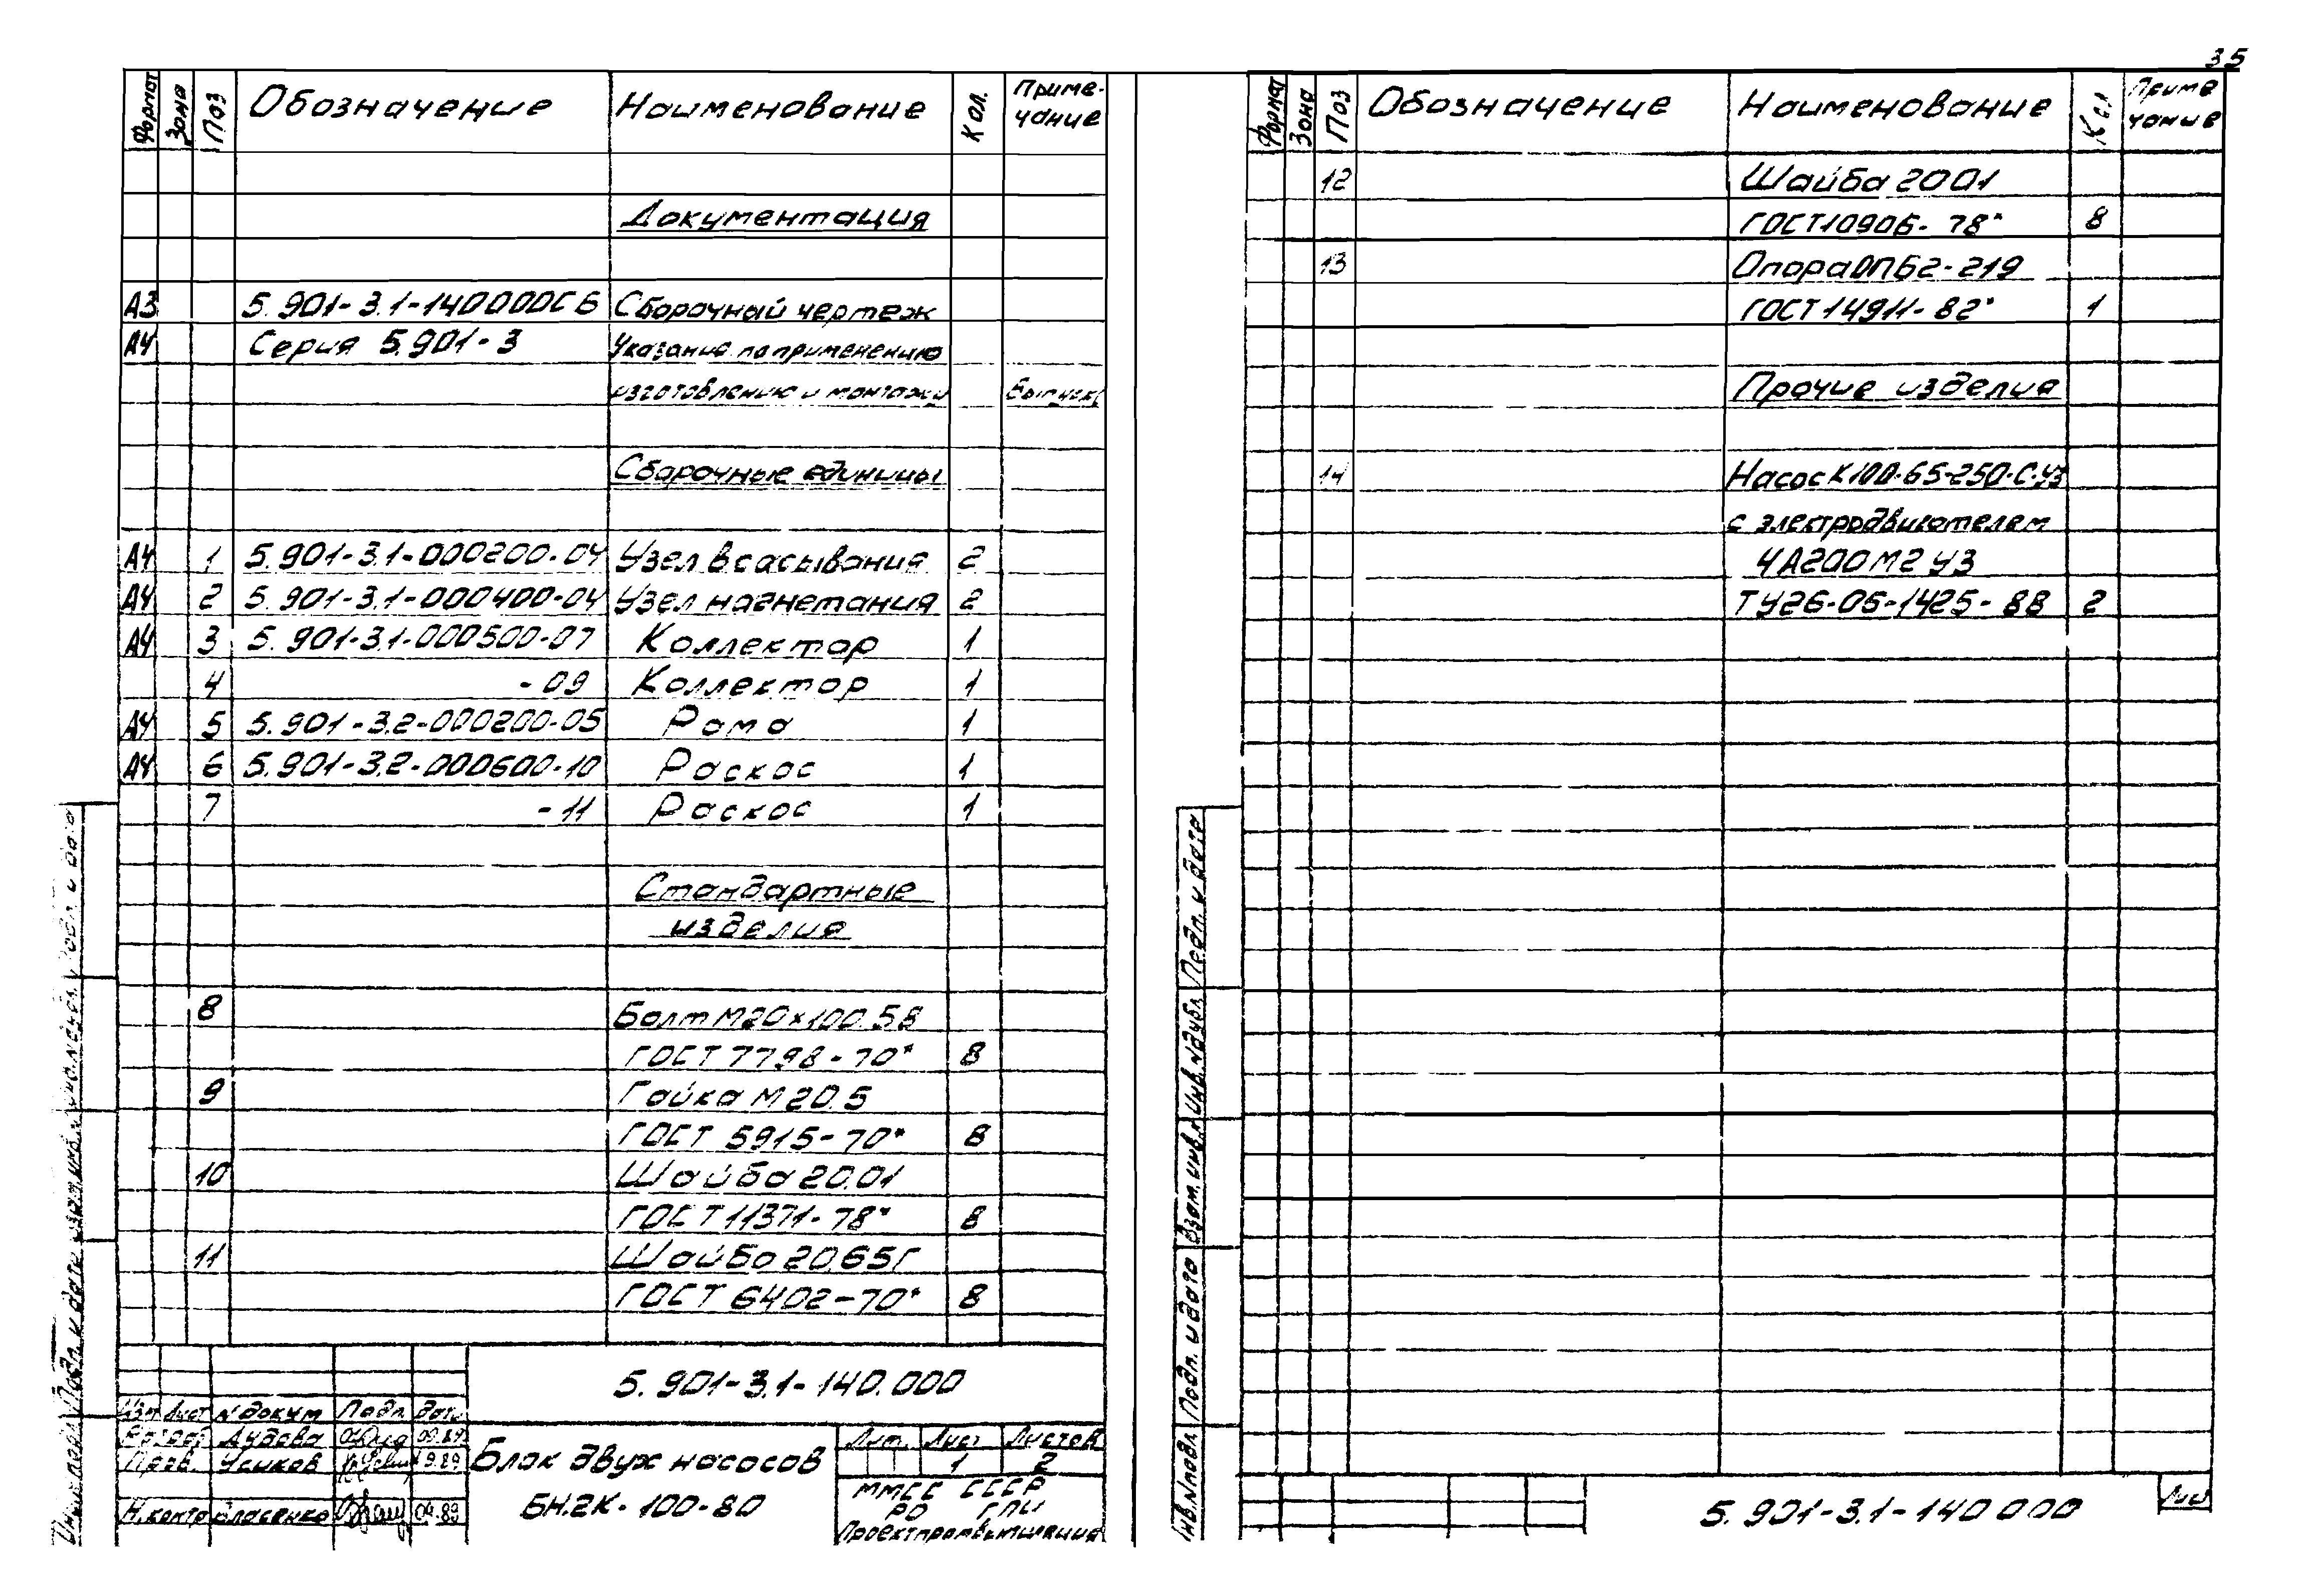 35
Формат Зона Поз Обозначение Наименование Кол. Приме-
чание
Документация
А3 5.901-3.1-140000СБ Сборочный чертеж
А4 Серия 5.901-3 Указания по применению
изготовлению и монтажу Выпуск
Сборочные единицы
А4 1 5.901-3.1-000200-04 Узел всасывания 2
А4 2 5.901-3.1-000400-04 Узел нагнетания 2
А4 3 5.901-3.1-000500-07 Коллектор 1
4 -09 Коллектор 1
А4 5 5.901-3.2-000200-05 Рама 1
А4 6 5.901-3.2-000600-10 Раскос 1
7 -11 Раскос 1
Стандартные
изделия
8 Болт М20×100.58
ГОСТ 7798-70* 8
9 Гайка М20.5
ГОСТ 5915-70* 8
10 Шайба 20.01
ГОСТ 11371-78* 8
11 Шайба 20.65Г
ГОСТ 6402-70* 8
5.901-3.1-140.000
Изм Лист № докум Подп. Дата
Разраб. Дудова 09.89
Пров. Усиков 9.89
Н.контр Власенко 09.89
Блок двух насосов
БН.2К-100-80
Лит. Лист Листов
1 2
ММСС СССР
РО ГПИ
Проектпромвентиляция
Подп. и дата Взам.инв.№
Формат Зона Поз Обозначение Наименование Кол Приме
чание
12 Шайба 2001
ГОСТ10906-78* 8
13 Опора ОПБ2-219
ГОСТ 14911-82* 1
Прочие изделия
14 Насос К100-65-250-С-У3
с электродвигателем
4А200М2У3
ТУ26-06-1425-88 2
Инв.№подл Подп. и дата Взам.инв.№ Инв.№дубл. Подп. и дата
5.901-3.1-140000
Лист